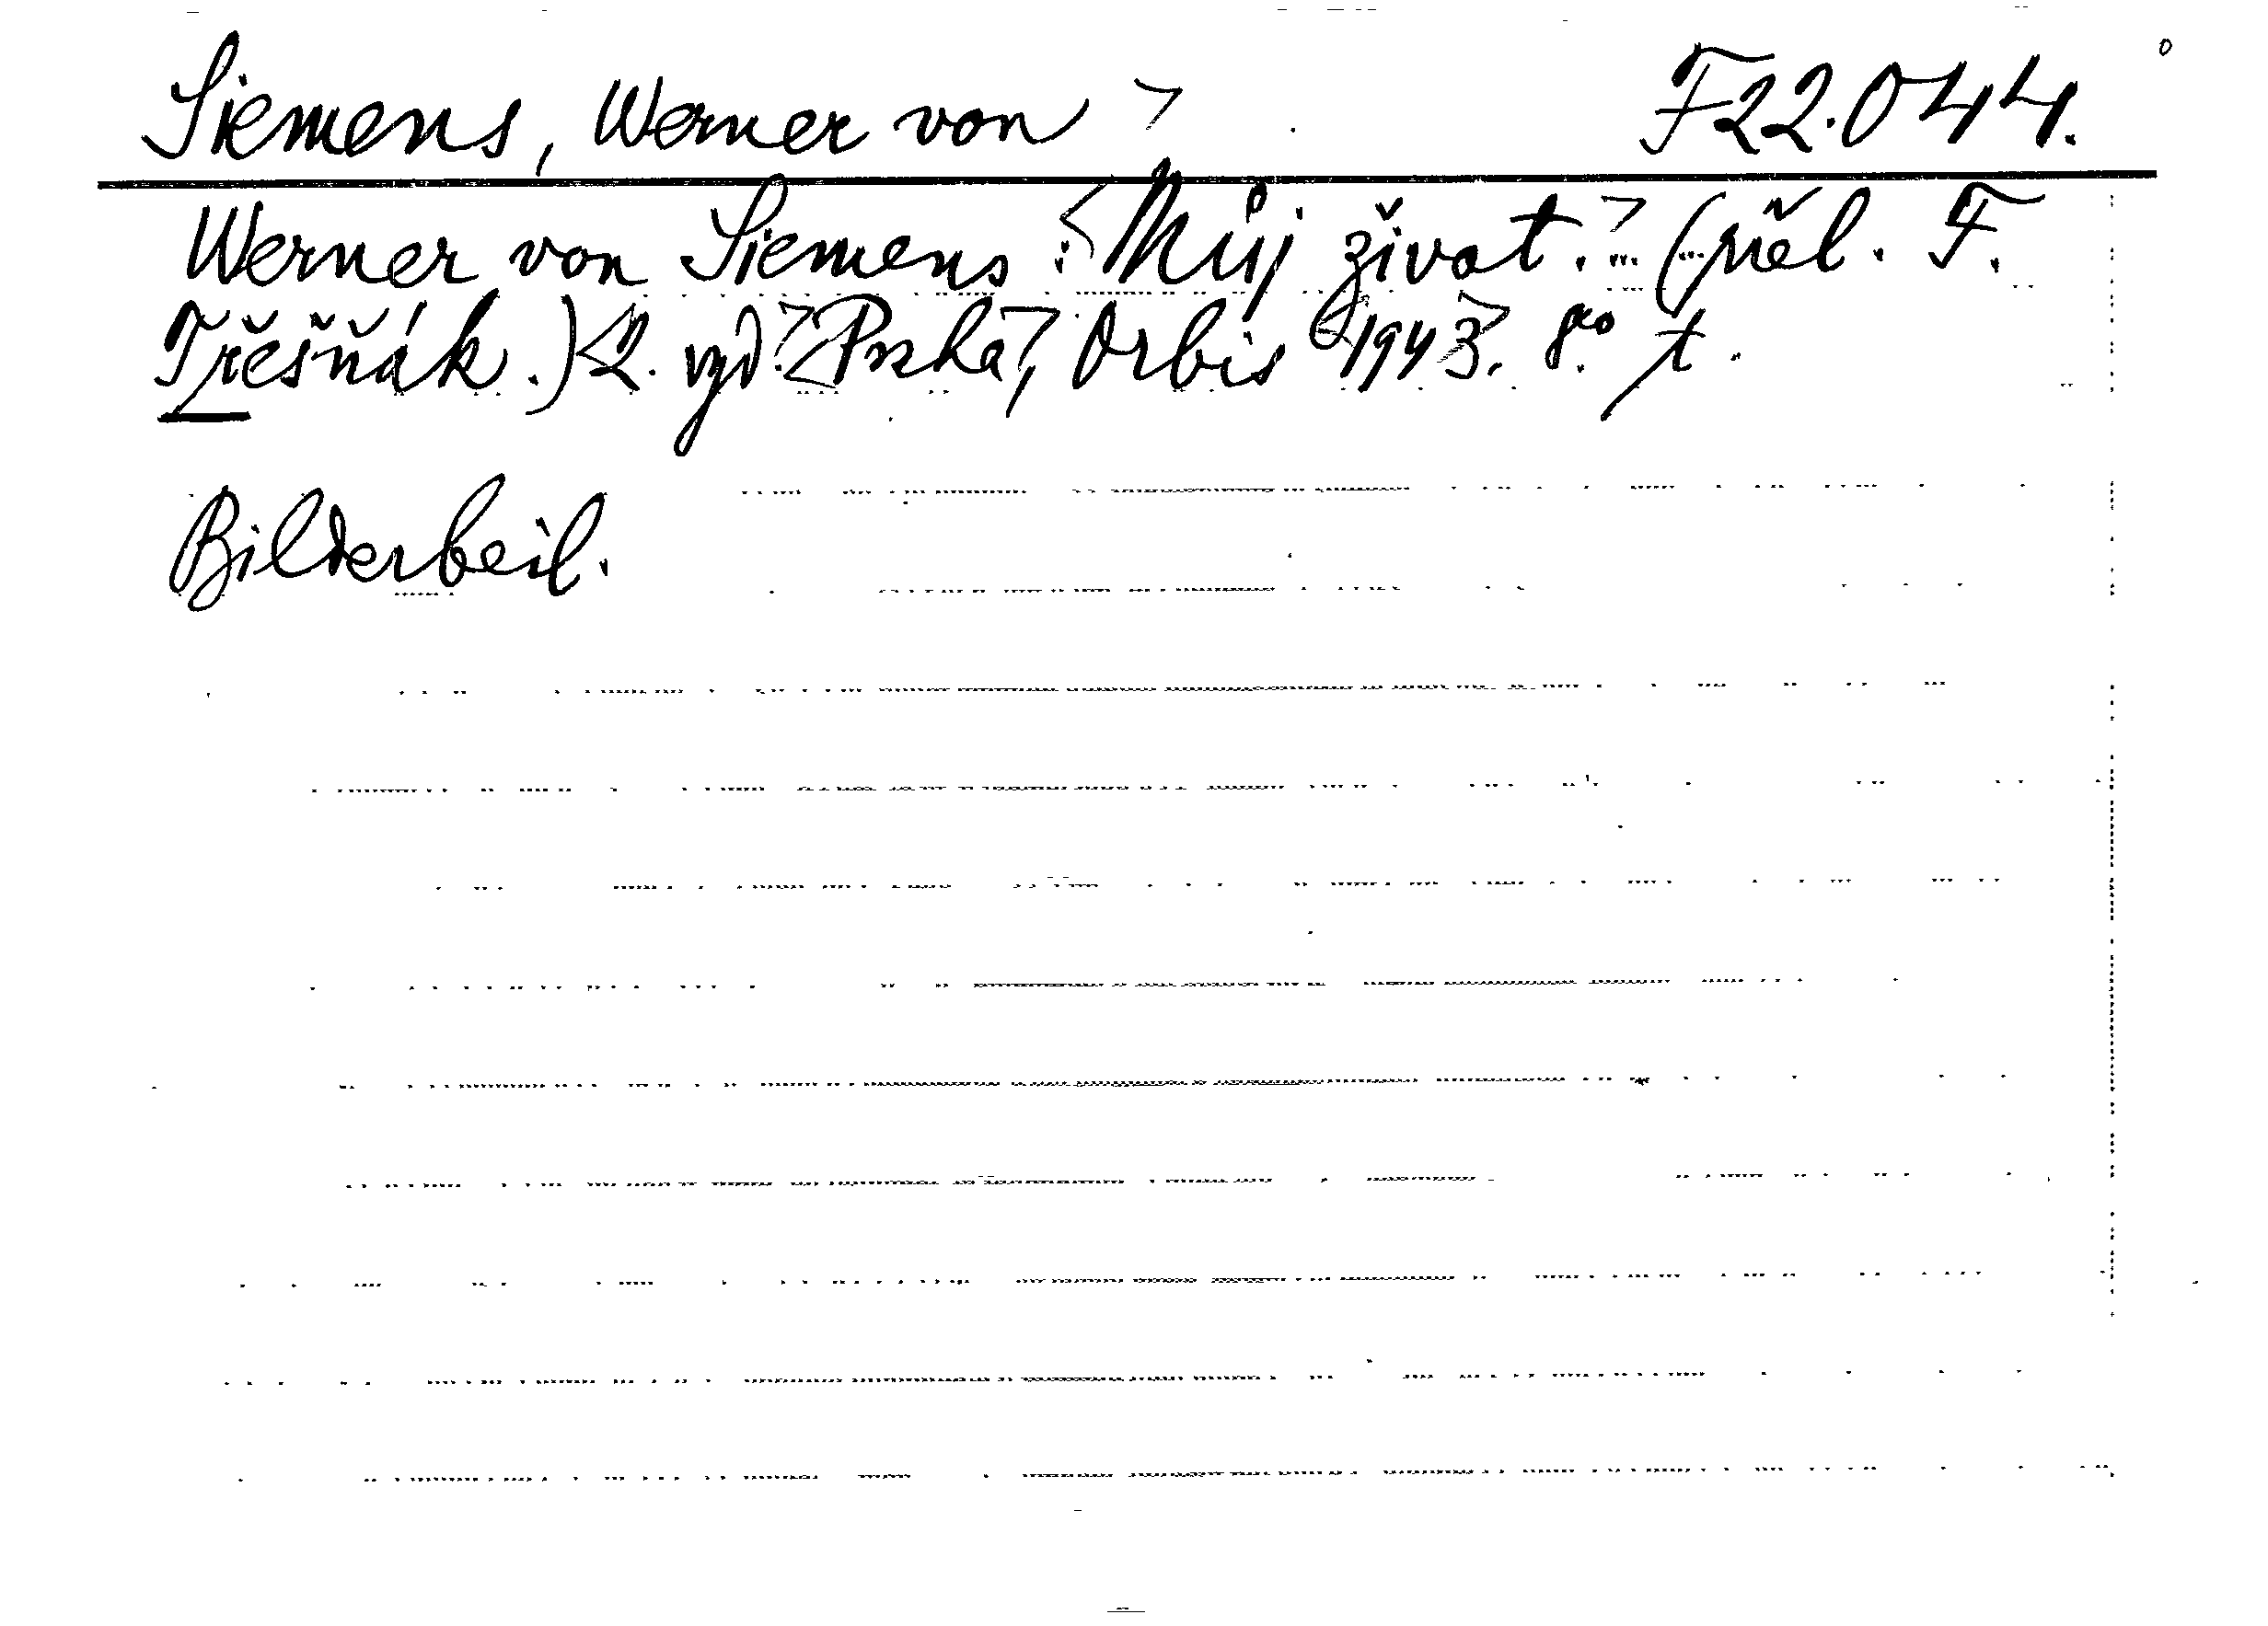 Siemens, Werner von > F22.044.
Werner von Siemens: <Můj život.> (přel. F.
Třešňák.) <2. vyd.> <Praha>, Orbis <1943>. 8° t.
Bilderbeil.